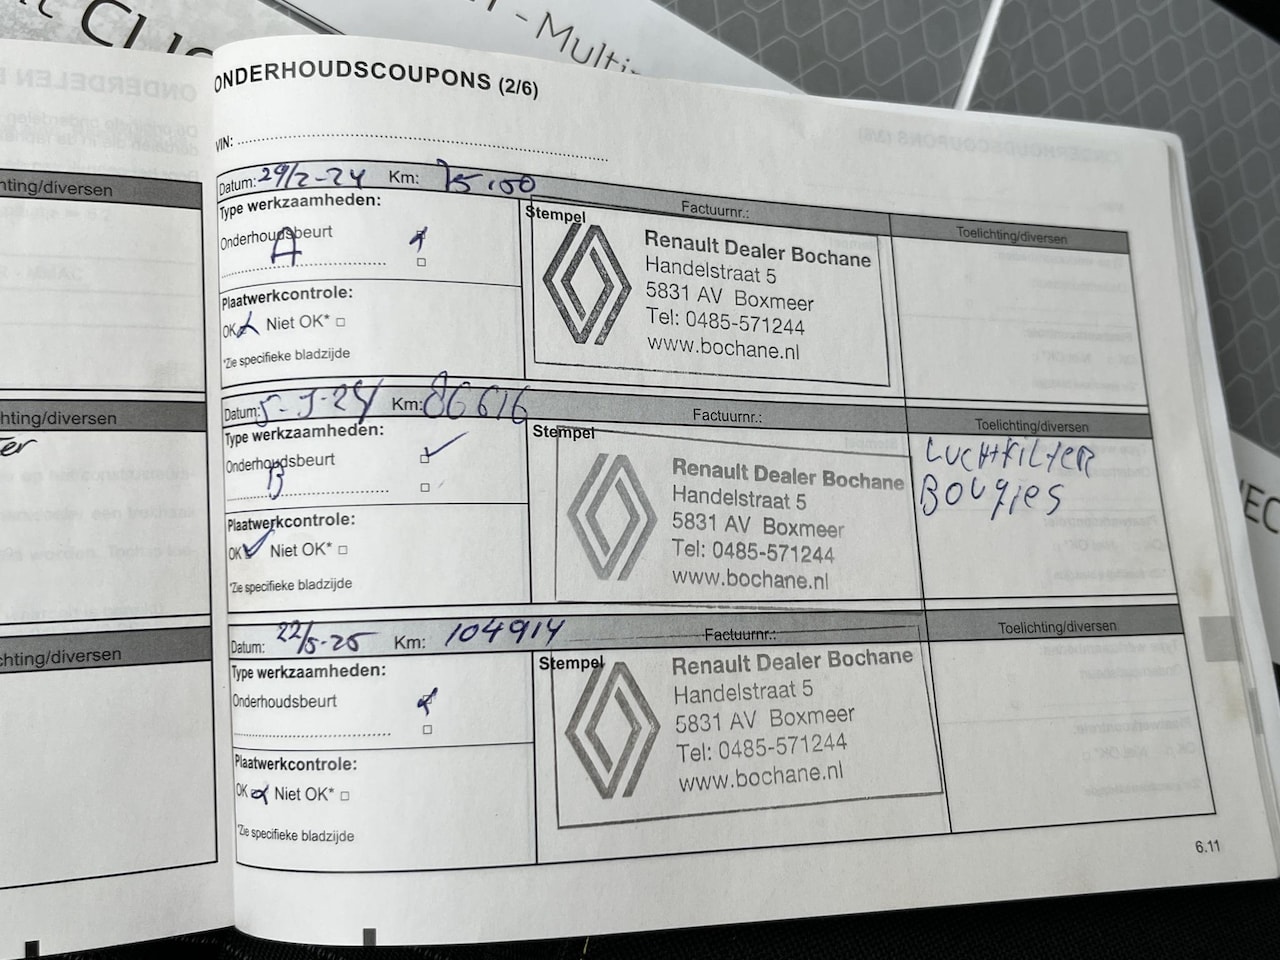 CLIO
- Multi
ONDERDELEN
ONDERHOUDSCOUPONS (2/6)
VIN:
chting/diversen
chting/diversen
ter
chting/diversen
Datum: 29/2-24 Km: 75.100
Factuurnr.:
Toelichting/diversen
Type werkzaamheden:
Onderhoudsbeurt
A
Plaatwerkcontrole:
OK Niet OK*
*Zie specifieke bladzijde
Stempel
Renault Dealer Bochane
Handelstraat 5
5831 AV Boxmeer
Tel: 0485-571244
www.bochane.nl
Datum: Km: 86616
Factuurnr.:
Toelichting/diversen
Type werkzaamheden:
Onderhoudsbeurt
B
Plaatwerkcontrole:
OK Niet OK*
*Zie specifieke bladzijde
Stempel
Renault Dealer Bochane
Handelstraat 5
5831 AV Boxmeer
Tel: 0485-571244
www.bochane.nl
LUCHTFILTER
BOUGIES
Datum: 22/5-25 Km: 104914
Factuurnr.:
Toelichting/diversen
Type werkzaamheden:
Onderhoudsbeurt
Plaatwerkcontrole:
OK Niet OK*
*Zie specifieke bladzijde
Stempel
Renault Dealer Bochane
Handelstraat 5
5831 AV Boxmeer
Tel: 0485-571244
www.bochane.nl
6.11